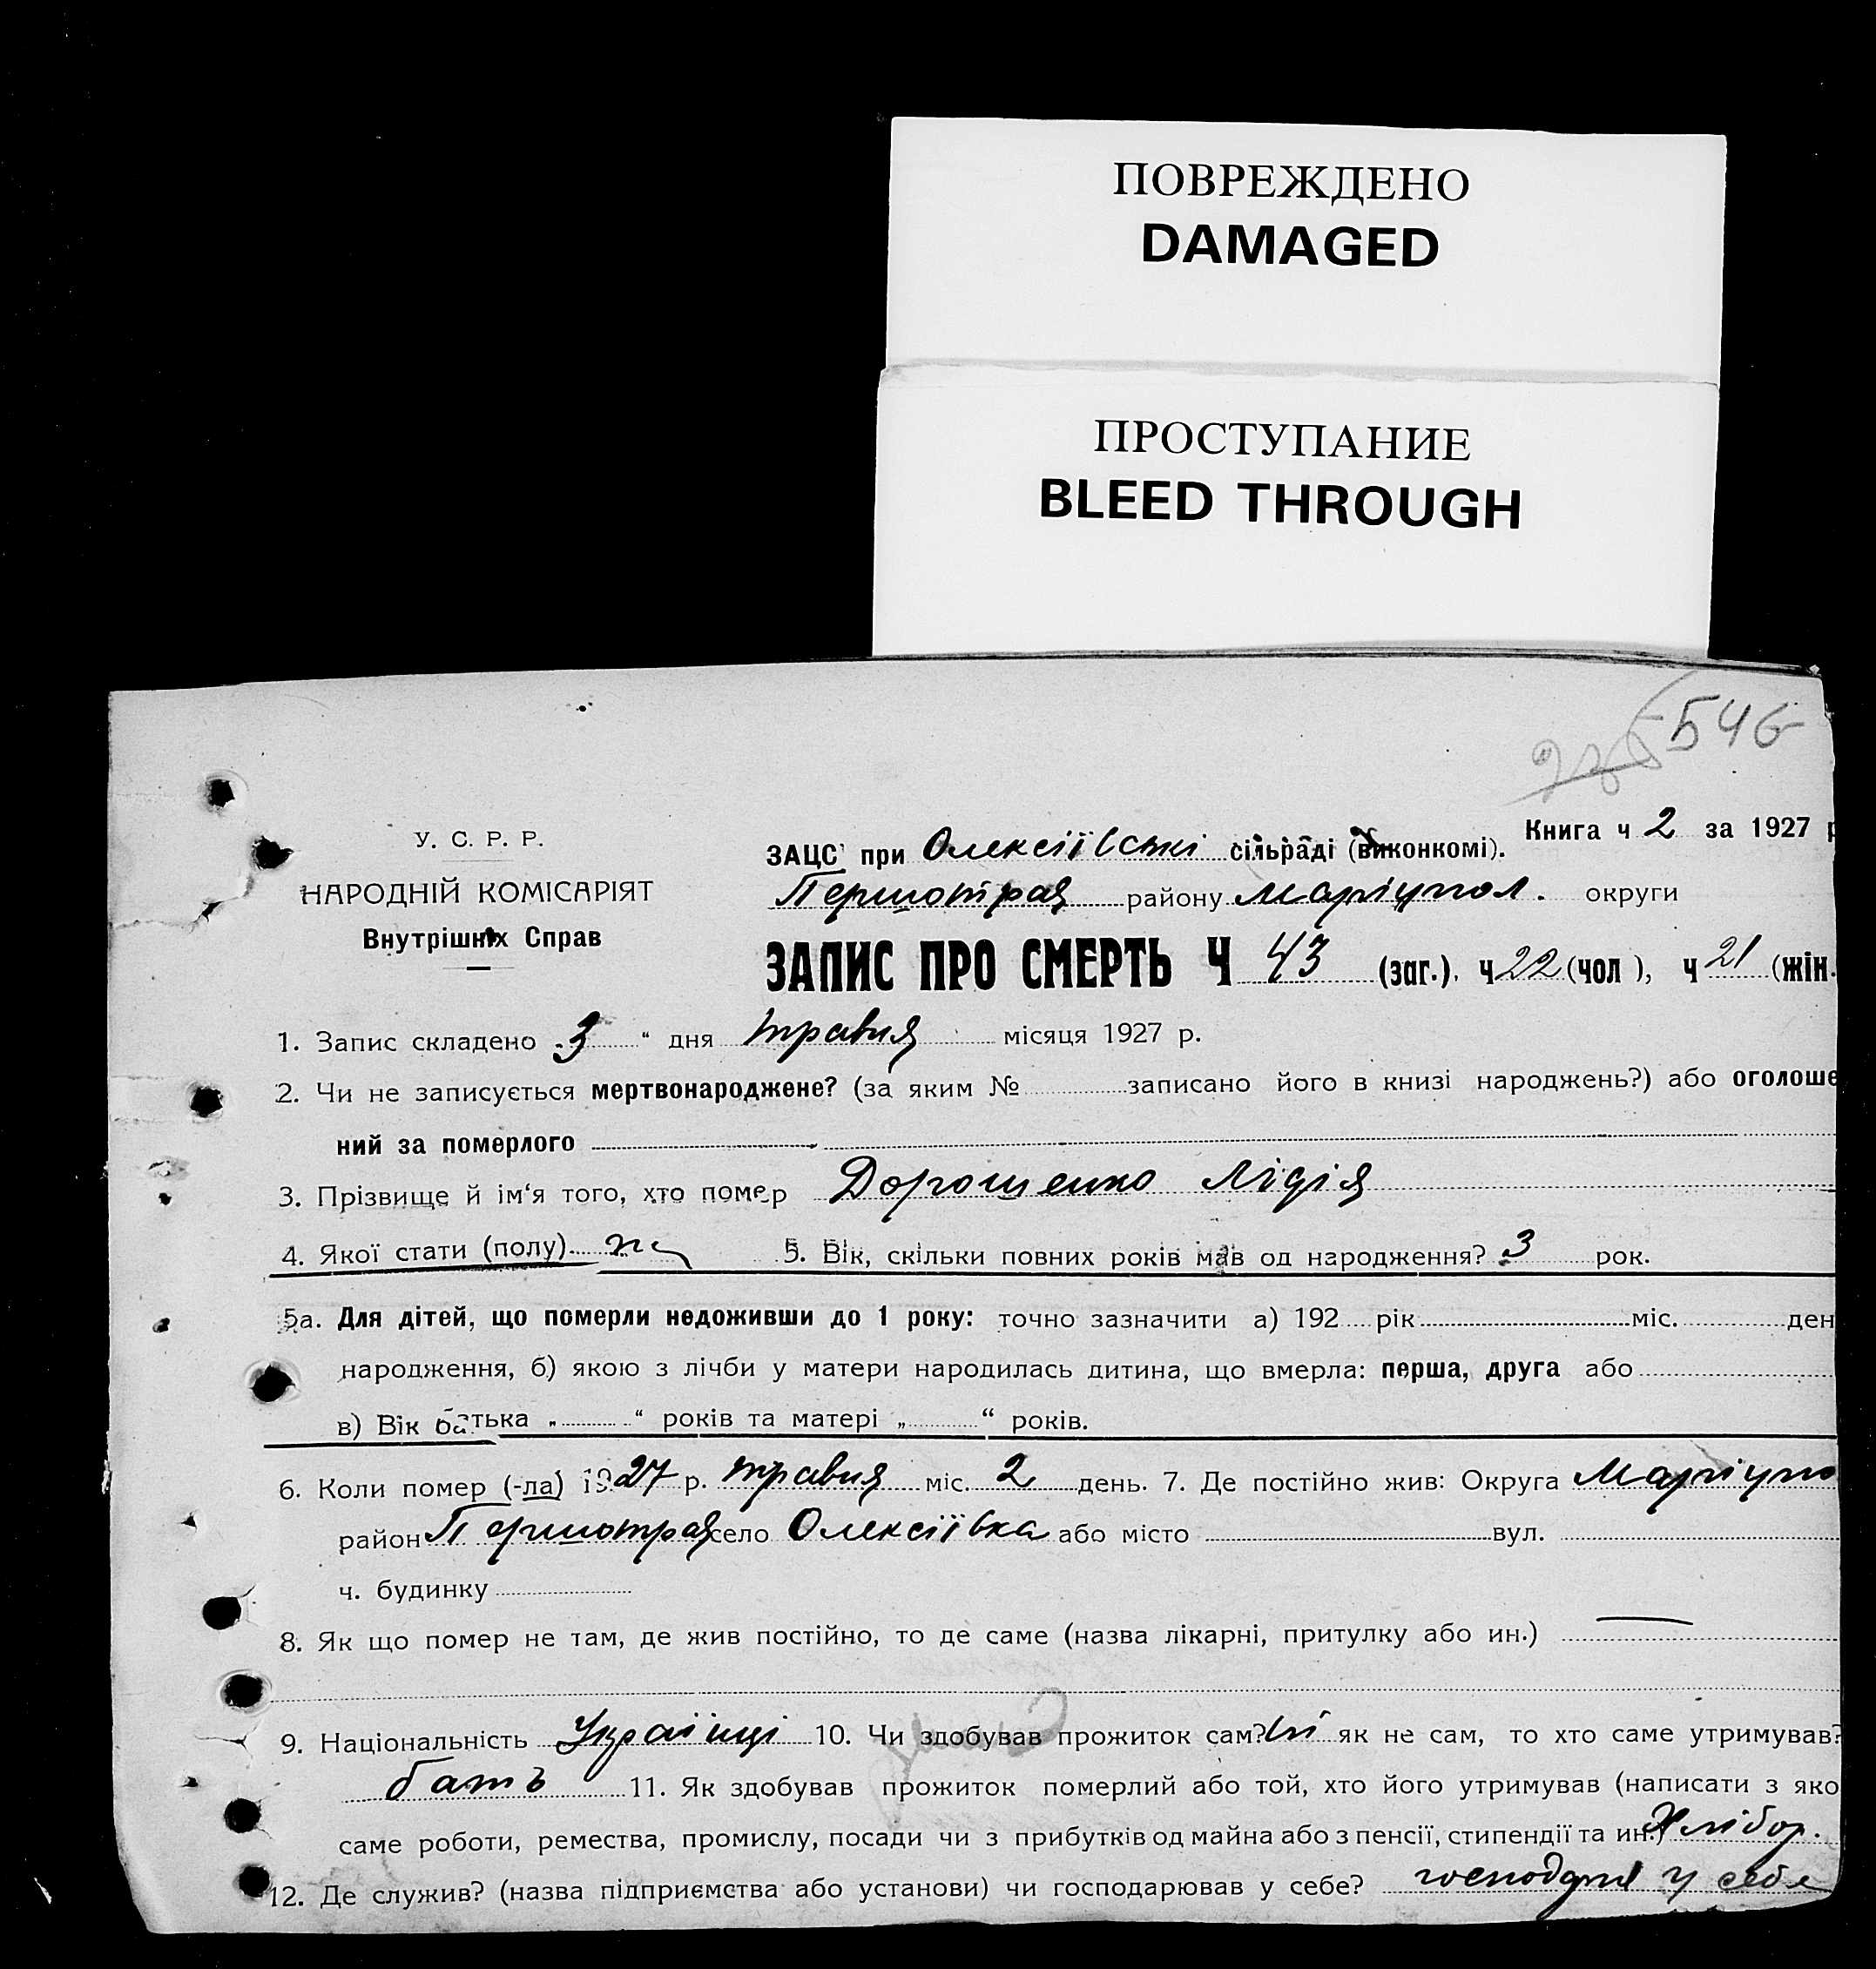 ПОВРЕЖДЕНО
DAMAGED
ПРОСТУПАНИЕ
BLEED THROUGH
546
Книга ч 2 за 1927 р
У. С. Р. Р.
НАРОДНІЙ КОМІСАРІЯТ
Внутрішніх Справ
ЗАЦС при Олексіївські сільраді (виконкомі).
Першотрав району Маріупол. округи
ЗАПИС ПРО СМЕРТЬ Ч 43 (заг.). ч 22 (чол ), ч 21 (жін.
1. Запис складено 3 " дня травня місяця 1927 р.
2. Чи не записується мертвонароджене? (за яким № записано його в книзі народжень?) або оголоше
ний за померлого
3. Прізвище й ім'я того, хто помер Дорошенко Лідія
4. Якої стати (полу) ж 5. Вік, скільки повних років мав од народження? 3 рок.
5а. Для дітей, що померли недоживши до 1 року: точно зазначити а) 192 рік міс. ден
народження, б) якою з лічби у матери народилась дитина, що вмерла: перша, друга або
в) Вік батька „ “ років та матері „ “ років.
6. Коли помер (-ла) 1927 р. травня міс. 2 день. 7. Де постійно жив: Округа Маріупо
район Першотрав село Олексіївка або місто вул.
ч. будинку
8. Як що помер не там, де жив постійно, то де саме (назва лікарні, притулку або ин.) —
9. Національність Українці 10. Чи здобував прожиток сам? Ні як не сам, то хто саме утримував?
бать 11. Як здобував прожиток померлий або той, хто його утримував (написати з яко
саме роботи, ремества, промислу, посади чи з прибутків од майна або з пенсії, стипендії та ин.) Хлібор.
12. Де служив? (назва підприємства або установи) чи господарював у себе? у себе